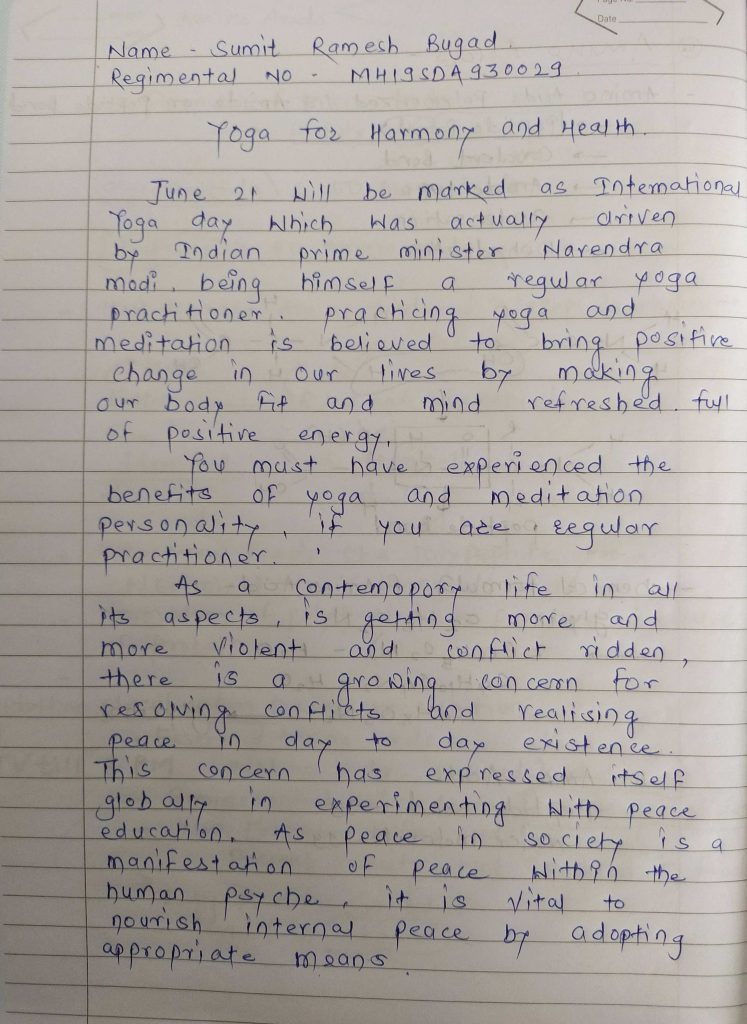 Date
Name - Sumit Ramesh Bugad.
Regimental NO - MH19SDA930029
Yoga for Harmony and Health.
June 21 Will be marked as International
Yoga day Which Was actually driven
by Indian prime minister Narendra
modi, being himself a regular yoga
practitioner. practicing yoga and
meditation is believed to bring positive
change in our lives by making
our body fit and mind refreshed. full
of positive energy,
You must have experienced the
benefits of yoga and meditation
personality, if you are regular
practitioner.
As a contemopory life in all
its aspects, is getting more and
more violent and conflict ridden,
there is a growing concern for
resolving conflicts and realising
peace in day to day existence.
This concern has expressed itself
globally in experimenting With peace
education. As peace in society is a
manifestation of peace Within the
human psyche, it is vital to
nourish internal peace by adopting
appropriate means.